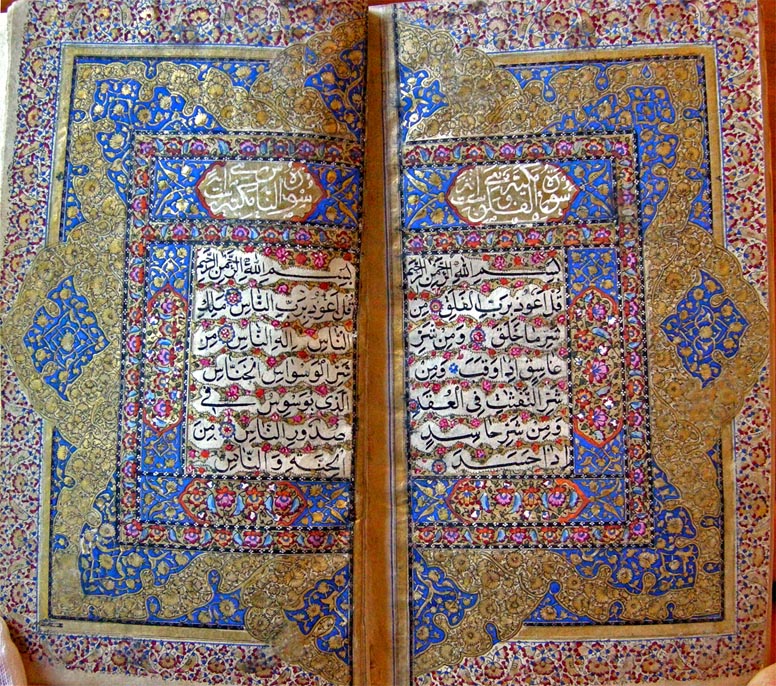 سورة الفلق
بِسْمِ اللهِ الرَّحْمٰنِ الرَّحِيمِ
قُلْ اَعُوذُ بِرَبِّ الْفَلَقِ مِنْ
شَرِّ مَا خَلَقَ وَمِنْ شَرِّ
غَاسِقٍ اِذَا وَقَبَ وَمِنْ
شَرِّ النَّفّٰثٰتِ فِى الْعُقَدِ
وَمِنْ شَرِّ حَاسِدٍ
اِذَا حَسَدَ
سورة الناس
بِسْمِ اللهِ الرَّحْمٰنِ الرَّحِيمِ
قُلْ اَعُوذُ بِرَبِّ النَّاسِ مَلِكِ
النَّاسِ اِلٰهِ النَّاسِ مِنْ
شَرِّ الْوَسْوَاسِ الْخَنَّاسِ
الَّذِى يُوَسْوِسُ فِى
صُدُورِ النَّاسِ مِنَ
الْجِنَّةِ وَالنَّاسِ